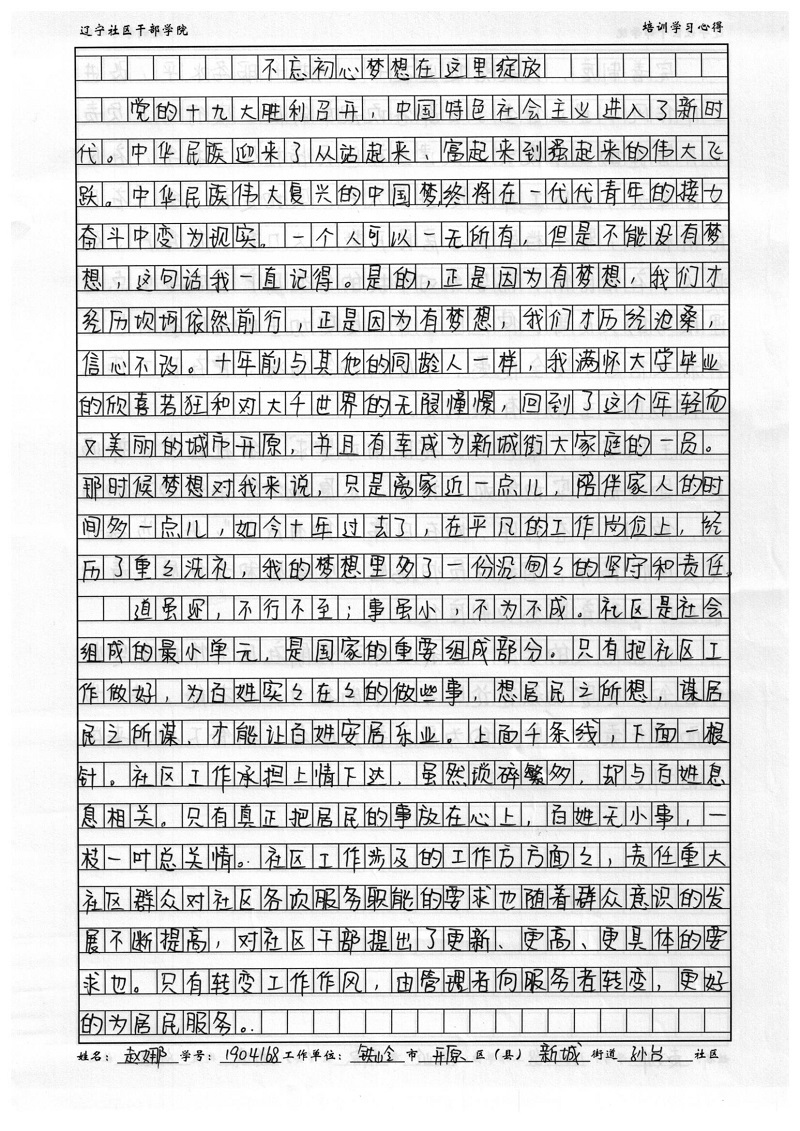 辽宁社区干部学院 培训学习心得
不忘初心梦想在这里绽放
党的十九大胜利召开，中国特色社会主义进入了新时
代。中华民族迎来了从站起来、富起来到强起来的伟大飞
跃。中华民族伟大复兴的中国梦终将在一代代青年的接力
奋斗中变为现实。一个人可以一无所有，但是不能没有梦
想，这句话我一直记得。是的，正是因为有梦想，我们才
经历坎坷依然前行，正是因为有梦想，我们才历经沧桑，
信心不改。十年前与其他的同龄人一样，我满怀大学毕业
的欣喜若狂和对大千世界的无限憧憬，回到了这个年轻而
又美丽的城市开原，并且有幸成为新城街大家庭的一员。
那时候梦想对我来说，只是离家近一点儿，陪伴家人的时
间多一点儿，如今十年过去了，在平凡的工作岗位上，经
历了重々洗礼，我的梦想里多了一份沉甸々的坚守和责任。
道虽迩，不行不至；事虽小，不为不成。社区是社会
组成的最小单元，是国家的重要组成部分。只有把社区工
作做好，为百姓实々在々的做些事，想居民之所想，谋居
民之所谋，才能让百姓安居乐业。上面千条线，下面一根
针。社区工作承担上情下达，虽然琐碎繁多，却与百姓息
息相关。只有真正把居民的事放在心上，百姓无小事，一
枝一叶总关情。社区工作涉及的工作方方面々，责任重大
社区群众对社区各项服务职能的要求也随着群众意识的发
展不断提高，对社区干部提出了更新、更高、更具体的要
求也。只有转变工作作风，由管理者向服务者转变，更好
的为居民服务。
姓名：赵娜 学号：1904168 工作单位：铁岭 市 开原 区（县） 新城 街道 孙台 社区